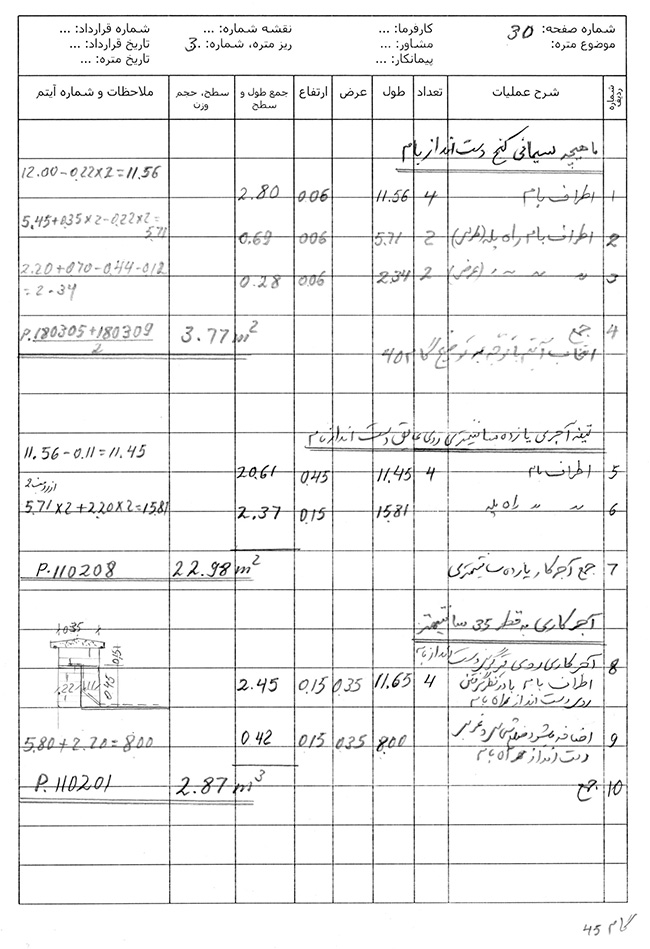 شماره صفحه: 30
موضوع متره:
کارفرما: ...
مشاور: ...
پیمانکار: ...
نقشه شماره: ...
ریز متره، شماره: 3.
شماره قرارداد: ...
تاریخ قرارداد: ...
تاریخ متره: ...
شماره ردیف شرح عملیات تعداد طول عرض ارتفاع جمع طول و سطح سطح، حجم وزن ملاحظات و شماره آیتم
ماهیچه سیمانی کنج دست انداز بام
12.00-0.22×2=11.56
1 اطراف بام 4 11.56 0.06 2.80
5.45+0.35×2-0.22×2=5.71
2 اطراف بام راه پله (طولی) 2 5.71 0.06 0.69
2.20+0.70-0.44-0.12=2.34
3 " " " " (عرضی) 2 2.34 0.06 0.28
4 جمع 3.77 m² P.180305+180309/2
انتخاب آیتم با توجه به توضیح گام 40
تیغه آجری یازده سانتیمتری روی عایق دست انداز بام
11.56-0.11=11.45
5 اطراف بام 4 11.45 0.45 20.61
از ردیف 2
5.71×2+2.20×2=15.81
6 " " راه پله 15.81 0.15 2.37
7 جمع آجرکار یازده سانتیمتری 22.98 m² P.110208
آجرکاری به قطر 35 سانتیمتر
0.35
0.15
0.45
.22
.11
8 آجرکاری روی دست انداز بام
اطراف بام با در نظر گرفتن 4 11.65 0.35 0.15 2.45
روی دست انداز راه بام
9 اضافه می‌شود ضلع شمالی و غربی 8.00 0.35 0.15 0.42 5.80+2.20=8.00
دست انداز راه بام
10 جمع 2.87 m³ P.110201
گام 45